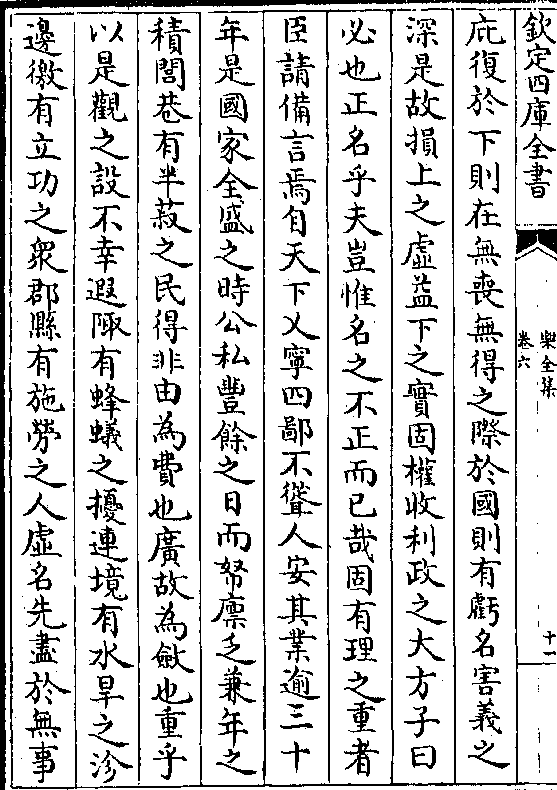 欽定四庫全書
樂全集
卷六
十一
庇復於下則在無喪無得之際於國則有虧名害義之
深是故損上之虛益下之實固權收利政之大方子曰
必也正名乎夫豈惟名之不正而已哉固有理之重者
臣請備言焉自天下乂寧四鄙不聳人安其業逾三十
年是國家全盛之時公私豐餘之日而帑廪乏兼年之
積閭巷有半菽之民得非由為費也廣故為斂也重乎
以是觀之設不幸遐陬有蜂蟻之擾連境有水旱之沴
邊徼有立功之衆郡縣有施勞之人虛名先盡於無事